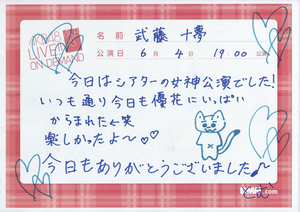 AKB48
LIVE!!
ON DEMAND
名前 武藤 十夢
公演日 6月4日 19:00 公演
今日はシアターの女神公演でした!
いつも通り今日も優花にいっぱい
からまれた←笑
楽しかったよ〜♡♡
今日もありがとうございました♪
とむ
.com